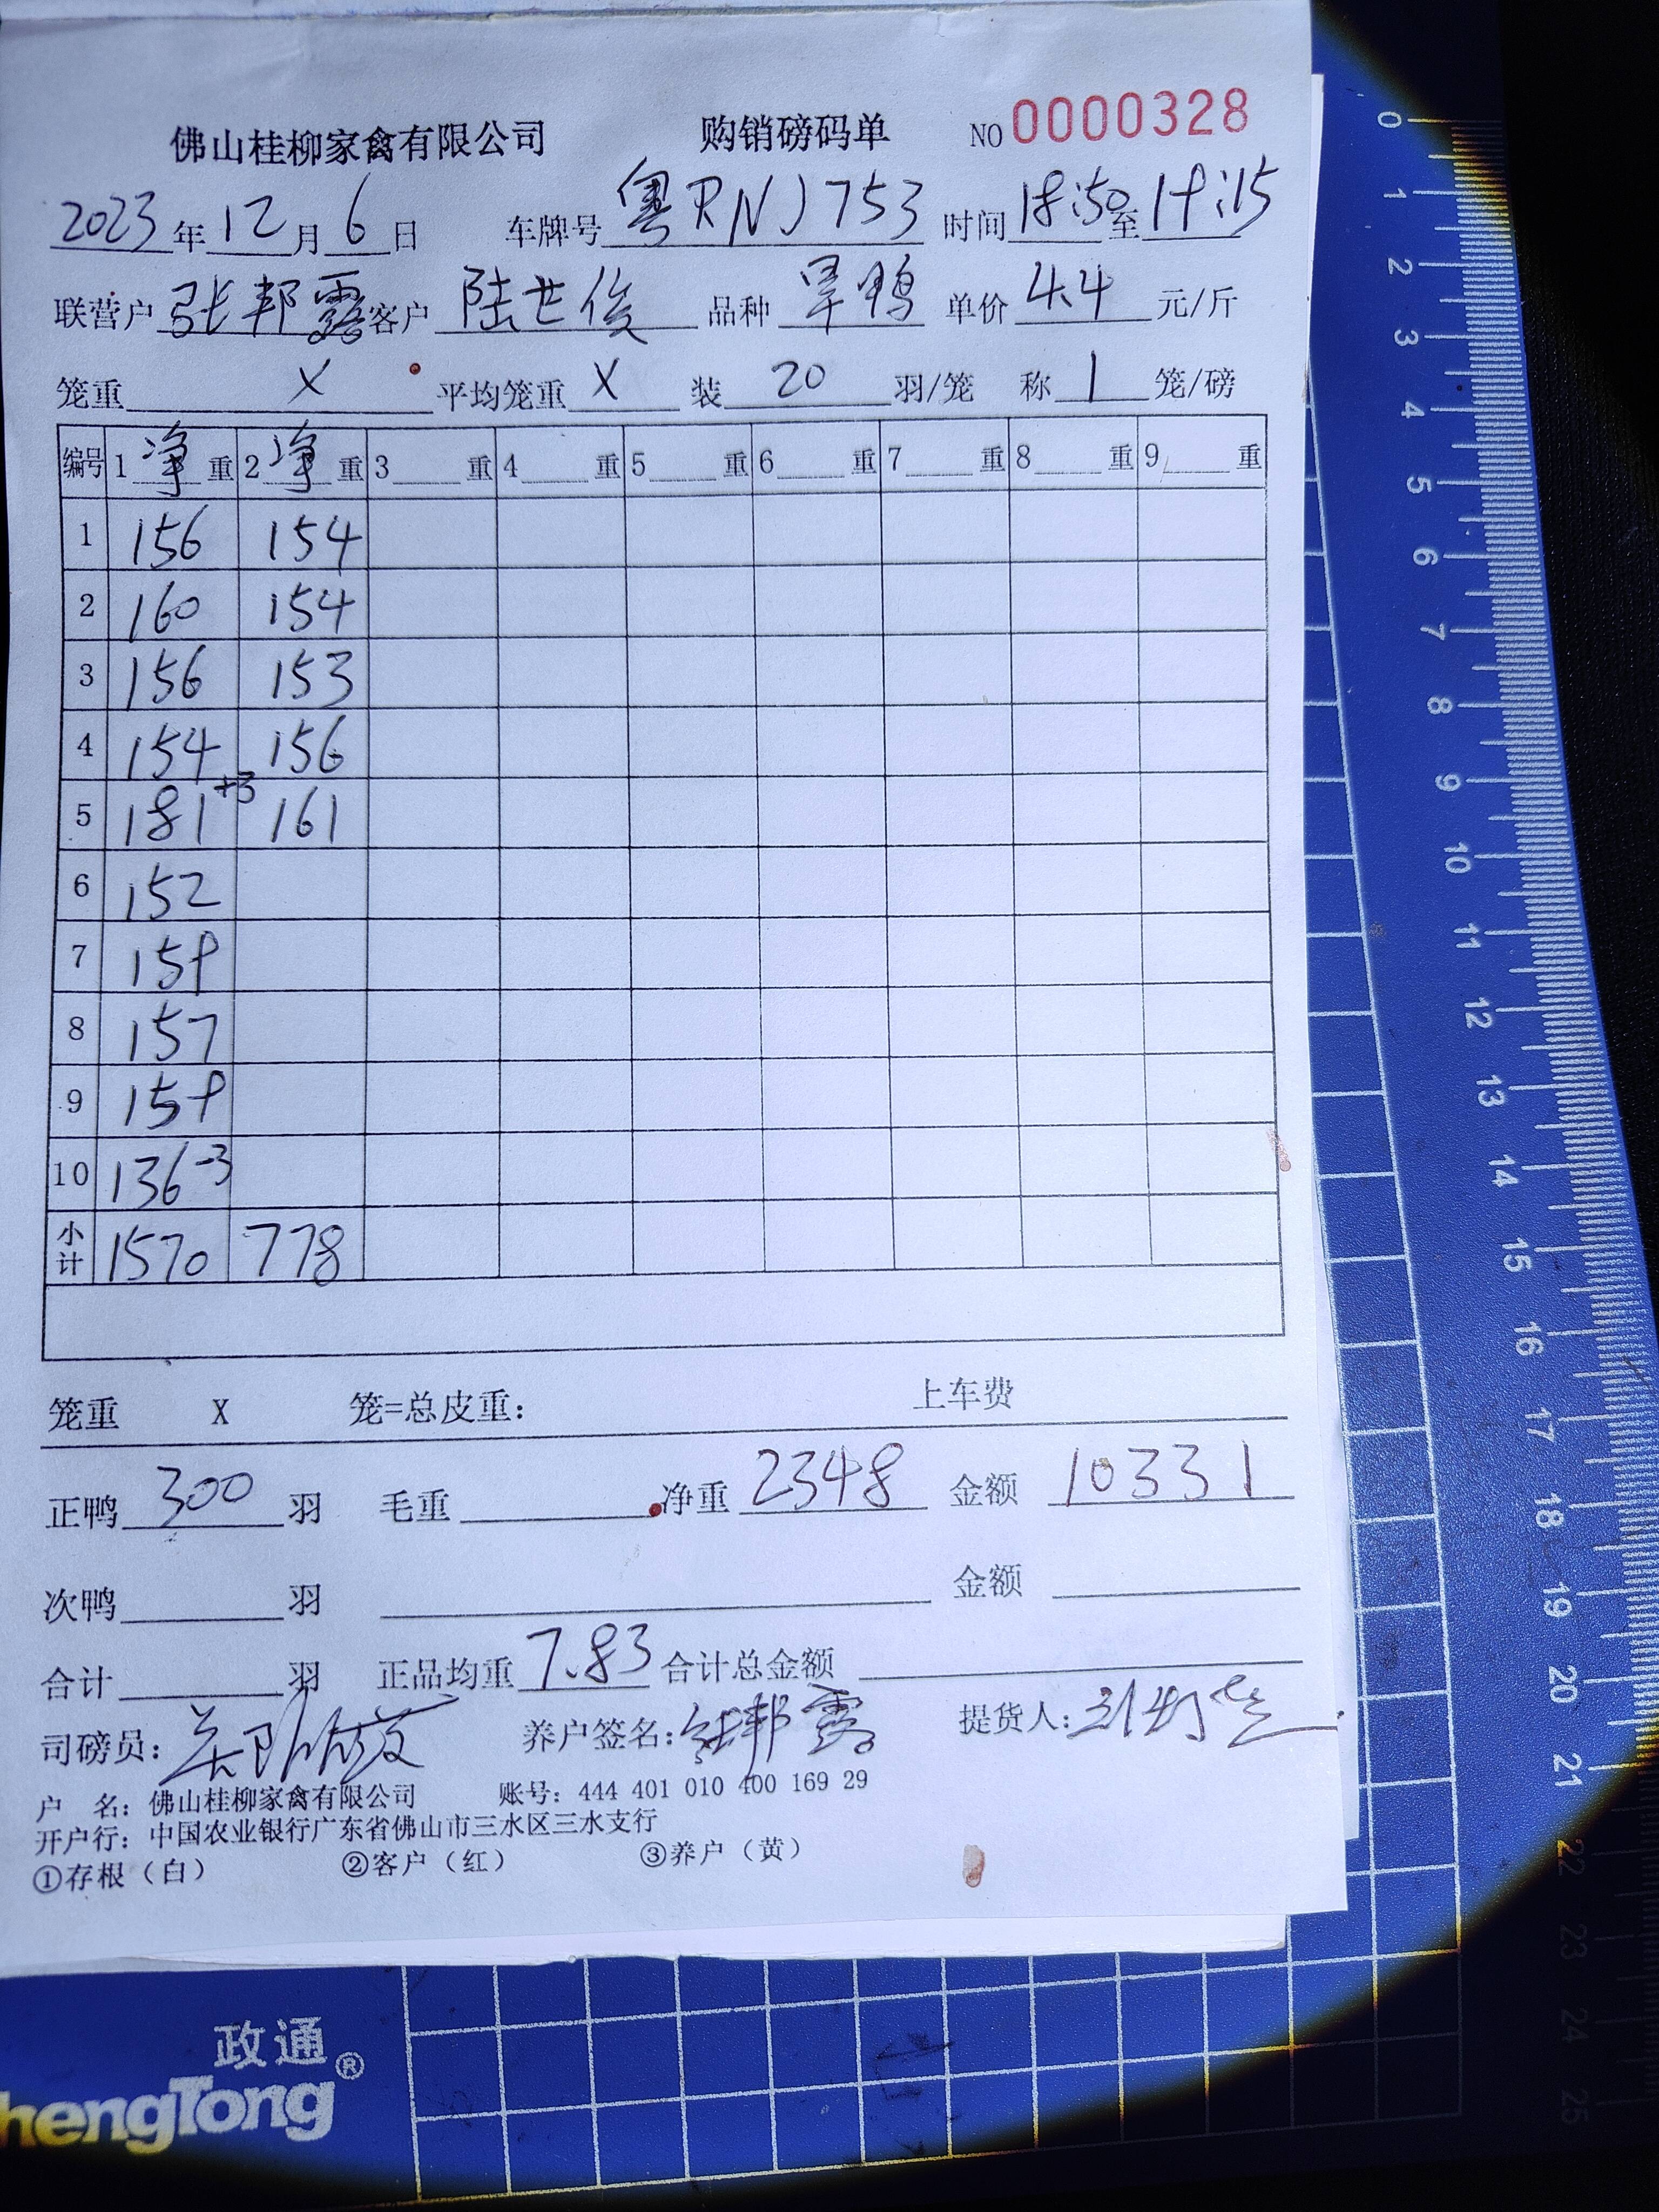 佛山桂柳家禽有限公司 购销磅码单 NO 0000328
2023年12月6日 车牌号 粤RNJ753 时间 18:50 至 19:15
联营户 张邦露 客户 陆世俊 品种 旱鸭 单价 4.4 元/斤
笼重 X 平均笼重 X 装 20 羽/笼 称 1 笼/磅
编号 1 净 重 2 净 重 3 重 4 重 5 重 6 重 7 重 8 重 9 重
1 156 154
2 160 154
3 156 153
4 154 156
5 181+3 161
6 152
7 159
8 157
9 159
10 136-3
小计 1570 778
笼重 X 笼=总皮重: 上车费
正鸭 300 羽 毛重 净重 2348 金额 10331
次鸭 羽 金额
合计 羽 正品均重 7.83 合计总金额
司磅员: 养户签名: 张邦露 提货人:
户 名: 佛山桂柳家禽有限公司 账号: 444 401 010 400 169 29
开户行: 中国农业银行广东省佛山市三水区三水支行
①存根(白) ②客户(红) ③养户(黄)
0 1 2 3 4 5 6 7 8 9 10 11 12 13 14 15 16 17 18 19 20 21 22 23 24 25
政通®
hengTong